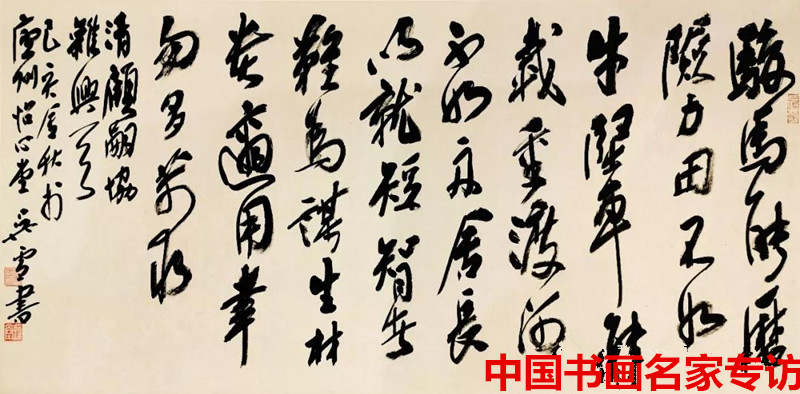 駿馬能歷
險力田不如
牛堅車能
載重渡河
不如舟舍長
以就短智者
難為謀生材
貴適用幸
勿多苛求
清顧嗣協
雜興一首
己亥金秋於
廬州怡心堂 吳雪書
中国书画名家专访